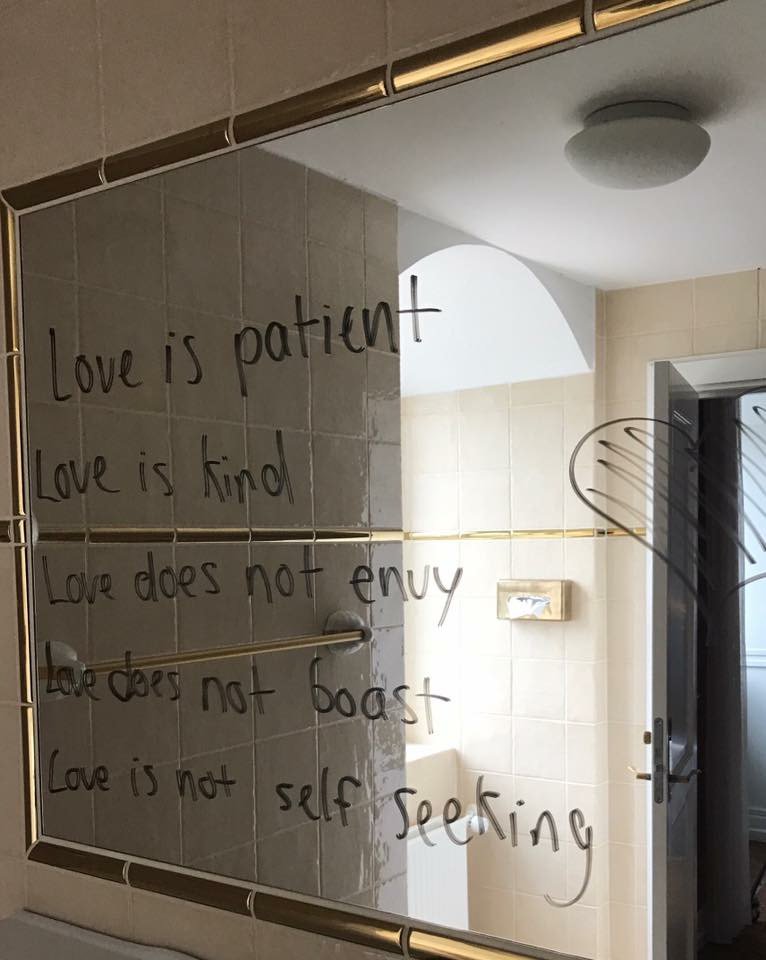 Love is patient
Love is kind
Love does not envy
Love does not boast
Love is not self seeking